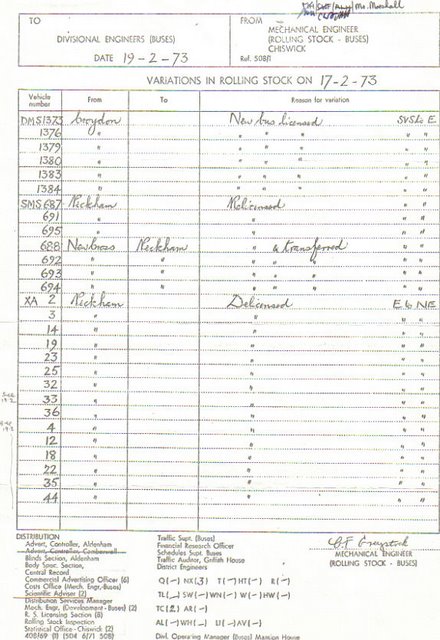 Mr. Marshall
TO
DIVISIONAL ENGINEERS (BUSES)
DATE 19-2-73
FROM
MECHANICAL ENGINEER
(ROLLING STOCK - BUSES)
CHISWICK
Ref. 508/1
VARIATIONS IN ROLLING STOCK ON 17-2-73
Vehicle number From To Reason for variation
DMS1373 Croydon New bus licensed SVS to E.
1376 " " " " " "
1379 " " " " " "
1380 " " " " " "
1383 " " " " " "
1384 " " " " " "
SMS 687 Peckham Relicensed " "
691 " " " "
695 " " " "
688 New Cross Peckham " & transferred " "
692 " " " " " " "
693 " " " " " " "
694 " " " " " " "
XA 2 Peckham Delicensed E to NE
3 " " " "
14 " " " "
19 " " " "
23 " " " "
25 " " " "
32 " " " "
33 " " " "
36 " " " "
4 " " " "
12 " " " "
18 " " " "
22 " " " "
35 " " " "
44 " " " "
DISTRIBUTION
Advert. Controller, Aldenham
Advert. Controller, Camberwell
Blinds Section, Aldenham
Body Spec. Section,
Central Record
Commercial Advertising Officer (6)
Costs Office (Mech. Engr. Buses)
Scientific Adviser (2)
Distribution Services Manager
Mech. Engr. (Development - Buses) (2)
R. S. Licensing Section (8)
Rolling Stock Inspection
Statistical Office - Chiswick (2)
408/69 (1) (504 6/71 508)
Traffic Supt. (Buses)
Financial Research Officer
Schedules Supt. Buses
Traffic Auditor, Griffith House
District Engineers
Q(-) NX(3) T(-) HT(-) R(-)
TL(-) SW(-) WN(-) W(-) HW(-)
TC(2) AR(-)
AL(-) WH(-) U(-) AV(-)
Divl. Operating Manager (Buses) Mansion House
MECHANICAL ENGINEER
(ROLLING STOCK - BUSES)